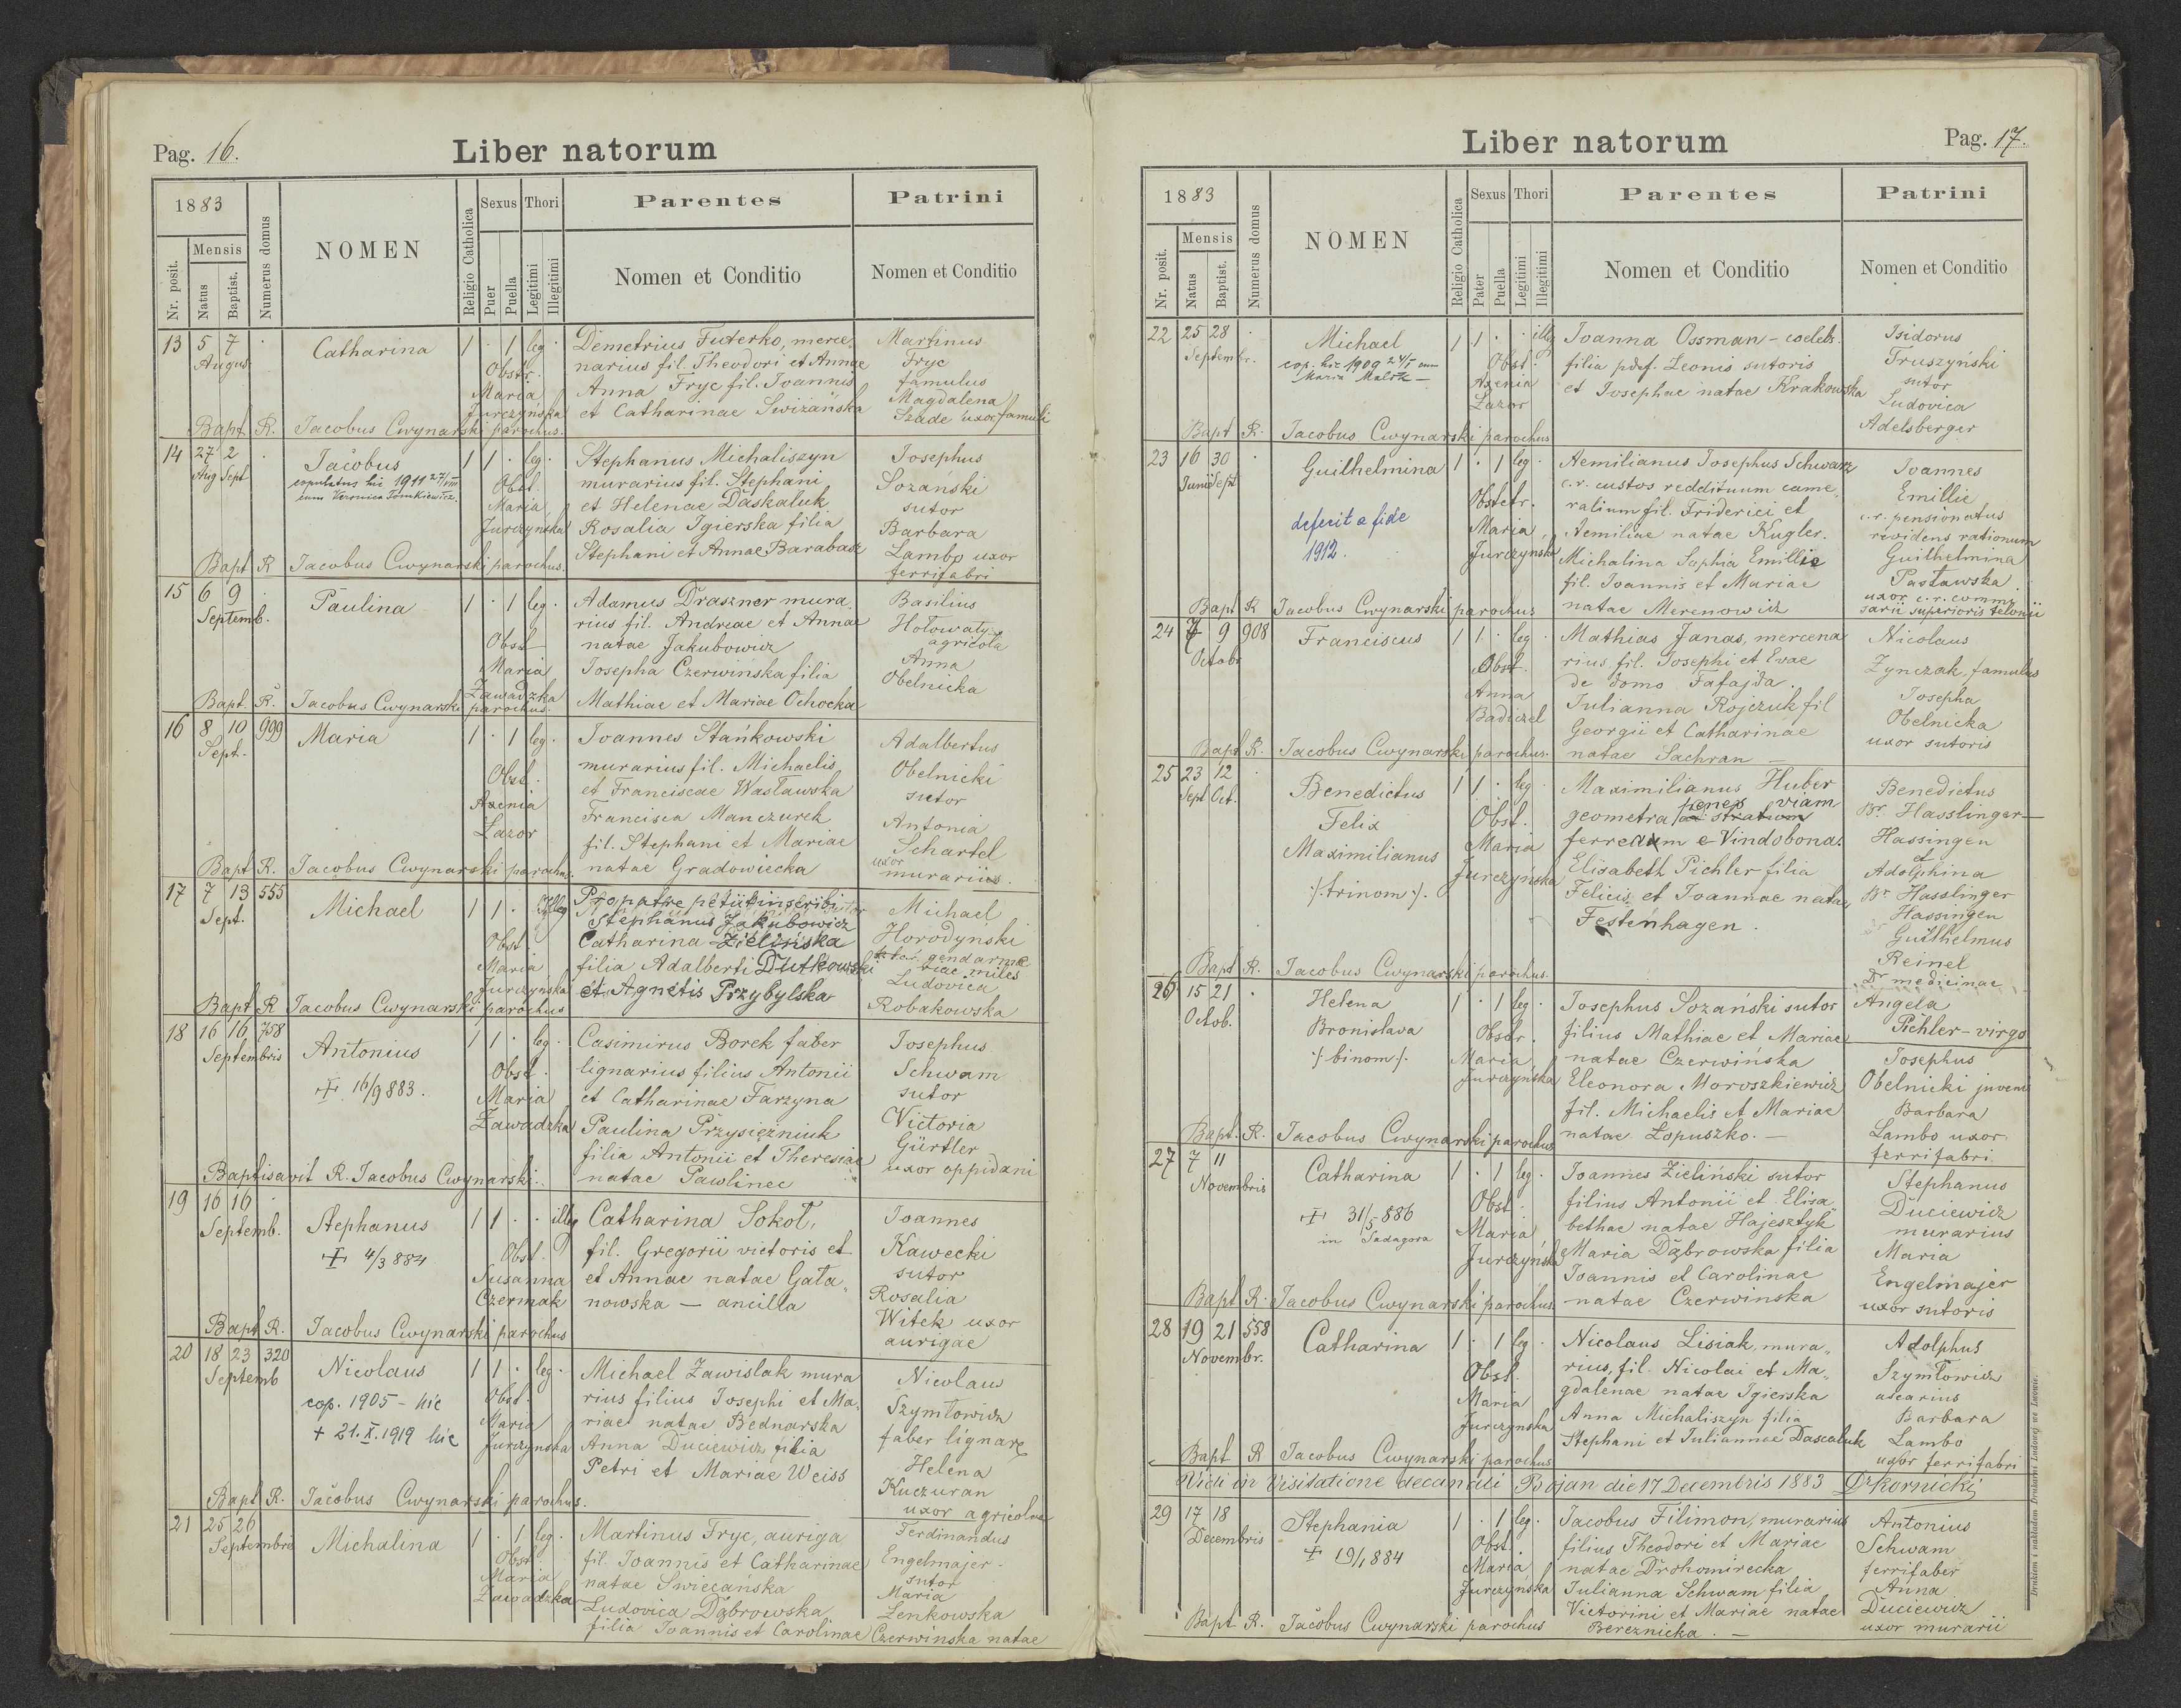 Pag. 16.
Liber natorum
1883
Nr. posit.
Mensis
Natus
Baptist.
Numerus domus
NOMEN
Religio Catholica
Sexus
Puer
Puella
Thori
Legitimi
Illegitimi
Parentes
Nomen et Conditio
Patrini
Nomen et Conditio
13 5 7 Catharina 1 · 1 leg · Demetrius Futerko, merce, Martinus
August. narius fil. Theodori et Annae Fryc
Obstr. Anna Fryc fil. Joannis famulus
Maria et Catharinae Swizańska Magdalena
Jurczyńska Szade uxor famuli
Bapt. R. Jacobus Cwynarski parochus.
14 27 2 Jacobus 1 1 · leg · Stephanus Michaliszyn Josephus
Aug Sept copulatus hic 1911 27/VIII murarius fil. Stephani Sozanski
cum Veronica Tomkiewicz. Obst. et Helenae Daskaluk sutor
Maria Rosalia Igierska filia Barbara
Jurczynska Stephani et Annae Barabasz Lambo uxor
Bapt R Jacobus Cwynarski parochus. ferrifabri
15 6 9 Paulina 1 · 1 leg · Adamus Draszner mura, Basilius
Septemb. rius fil. Andreae et Annae Hołowaty
Obst natae Jakubowicz agricola
Maria Josepha Czerwińska filia Anna
Zawadzka Mathiae et Mariae Ochocka Obelnicka
Bapt. R. Jacobus Cwynarski parochus.
16 8 10 999 Maria 1 · 1 leg · Joannes Stańkowski Adalbertus
Sept. murarius fil. Michaelis Obelnicki
Obst. et Franciscae Wasławska sutor
Axenia Francisca Manczurek Antonia
Łazor fil. Stephani et Mariae Schartel
Bapt R. Jacobus Cwynarski parochus. natae Gradowiecka uxor murarii
17 7 13 555 Michael 1 1 · Illeg Pro patre petiit inscribi Michael
Sept. Stephanus Jakubowicz Horodyński
Obst. Catharina Zielińska gendarme
Maria filia Adalberti Dutkowski riae miles
Jurczyńska et Agnetis Przybylska Ludovica
Bapt R Jacobus Cwynarski parochus Robakowska
18 16 16 758 Antonius 1 1 · leg · Casimirus Borek faber Josephus
Septembris lignarius filius Antonii Schwam
+ 16/9 883. Obst. et Catharinae Farzyna sutor
Maria Paulina Przysiężniuk Victoria
Zawadzka filia Antonii et Theresiae Gürtler
Baptisavit R. Jacobus Cwynarski. natae Pawlinec uxor oppidani
19 16 16 Stephanus 1 1 · · illeg Catharina Sokoł, Joannes
Septemb. + 4/3 884 Obst. fil. Gregorii victoris et Kawecki
Susanna et Annae natae Gała„ sutor
Czermak nowska — ancilla Rosalia
Bapt R. Jacobus Cwynarski parochus Witek uxor
aurigae
20 18 23 320 Nicolaus 1 1 · leg · Michael Zawislak mura Nicolaus
Septemb cop. 1905 - hic Obst. rius filius Josephi et Ma, Szymłowicz
+ 21.X.1919 hic Maria riae natae Bednarska faber lignare
Jurczynska Anna Duciewicz filia Helena
Petri et Mariae Weiss Kuczuran
Bapt R. Jacobus Cwynarski parochus. uxor agricolae
21 25 26 Michalina 1 · 1 leg · Martinus Fryc, auriga Ferdinandus
Septembris Obst fil. Joannis et Catharinae Engelmajer -
Maria natae Swiecańska sutor
Zawadzka Ludovica Dąbrowska Maria
filia Joannis et Carolinae Czerwinska natae Zenkowska
Liber natorum
Pag. 17.
1883
Nr. posit.
Mensis
Natus
Baptist.
Numerus domus
NOMEN
Religio Catholica
Sexus
Pater
Puella
Thori
Legitimi
Illegitimi
Parentes
Nomen et Conditio
Patrini
Nomen et Conditio
22 25 28 Michael 1 1 · · illeg Joanna Ossman - coeleb. Isidorus
Septembr. cop. hic 1909 24/I cum Obst. filia pdef. Leonis sutoris Truszyński
Maria Malek — Axenia et Josephae natae Krakowska sutor
Łazor Ludovica
Bapt R. Jacobus Cwynarski parochus Adelsberger
23 16 30 Guilhelmina 1 · 1 leg · Aemilianus Josephus Schwarz Joannes
Junii Sept c.r. custos reddituum came„ Emillie
defecit a fide Obstetr. ralium fil. Friderici et c.r. pensionatus
1912. Maria Aemiliae natae Kugler. revidens rationum
Jurczynska Michalina Sophia Emillie Guilhelmina
fil. Joannis et Mariae Pasławska
Bapt R Jacobus Cwynarski parochus natae Merenowicz uxor c.r. commi
sarii superioris telonii
24 7 9 908 Franciscus 1 1 · leg · Mathias Janas, mercena Nicolaus
Octobr Obst. rius fil. Josephi et Evae Zynczak, famulus
Anna de domo Fafajda. Josepha
Badiczel Julianna Rojczuk fil Obelnicka
Georgii et Catharinae uxor sutoris
Bapt R. Jacobus Cwynarski parochus. natae Sachran —
25 23 12 Benedictus 1 1 · leg · Maximilianus Huber Benedictus
Sept Oct. Felix Obst. geometra penes viam Br. Hasslinger—
Maximilianus Maria ferream e Vindobona. Hassingen
·/. trinom ·/. Jurczyńska Elisabeth Pichler filia et Adolphina
Felicis et Joannae natae Br. Hasslinger
Festenhagen. Hassingen
Guilhelmus
Bapt R. Jacobus Cwynarski parochus. Reinel
Dr medicinae
Angela
Pichler - virgo
26 15 21 Helena 1 · 1 leg · Josephus Sozański sutor
Octob. Bronislava Obstr. filius Mathiae et Mariae
·/. binom ·/. Maria natae Czerwińska Josephus
Jurczyńska Eleonora Moroszkiewicz Obelnicki juvenis
fil. Michaelis et Mariae Barbara
Bapt. R. Jacobus Cwynarski parochus natae Łopuszko. — Lambo uxor
ferrifabri.
27 7 11 Catharina 1 · 1 leg · Joannes Zieliński sutor Stephanus
Novembris + 31/5 886 Obst. filius Antonii et Elisa„ Duciewicz
in Sadagora Maria bethae natae Hajesztyk murarius
Jurczyńska Maria Dąbrowska filia Maria
Joannis et Carolinae Engelmajer
Bapt R. Jacobus Cwynarski parochus. natae Czerwinska uxor sutoris
28 19 21 558 Catharina 1 · 1 leg · Nicolaus Lisiak, mura„ Adolphus
Novembr. Obst. rius, fil. Nicolai et Ma„ Szymłowicz
Maria gdalenae natae Igierska ascarius
Jurczynska Anna Michaliszyn filia Barbara
Stephani et Juliannae Dascaluk Lambo
Bapt R Jacobus Cwynarski parochus uxor ferrifabri
Vidi in Visitatione decanali Bojan die 17 Decembris 1883 Dr Kornicki
29 17 18 Stephania 1 · 1 leg · Jacobus Filimon, murarius Antonius
Decembris + 19/1 884 Obst. filius Theodori et Mariae Schwam
Maria natae Drohomirecka ferrifaber
Jurczyńska Julianna Schwam filia Anna
Victorini et Mariae natae Duciewicz
Bapt R. Jacobus Cwynarski parochus Bereznicka. — uxor murarii
Drukiem i nakładem Drukarni Ludowej we Lwowie.